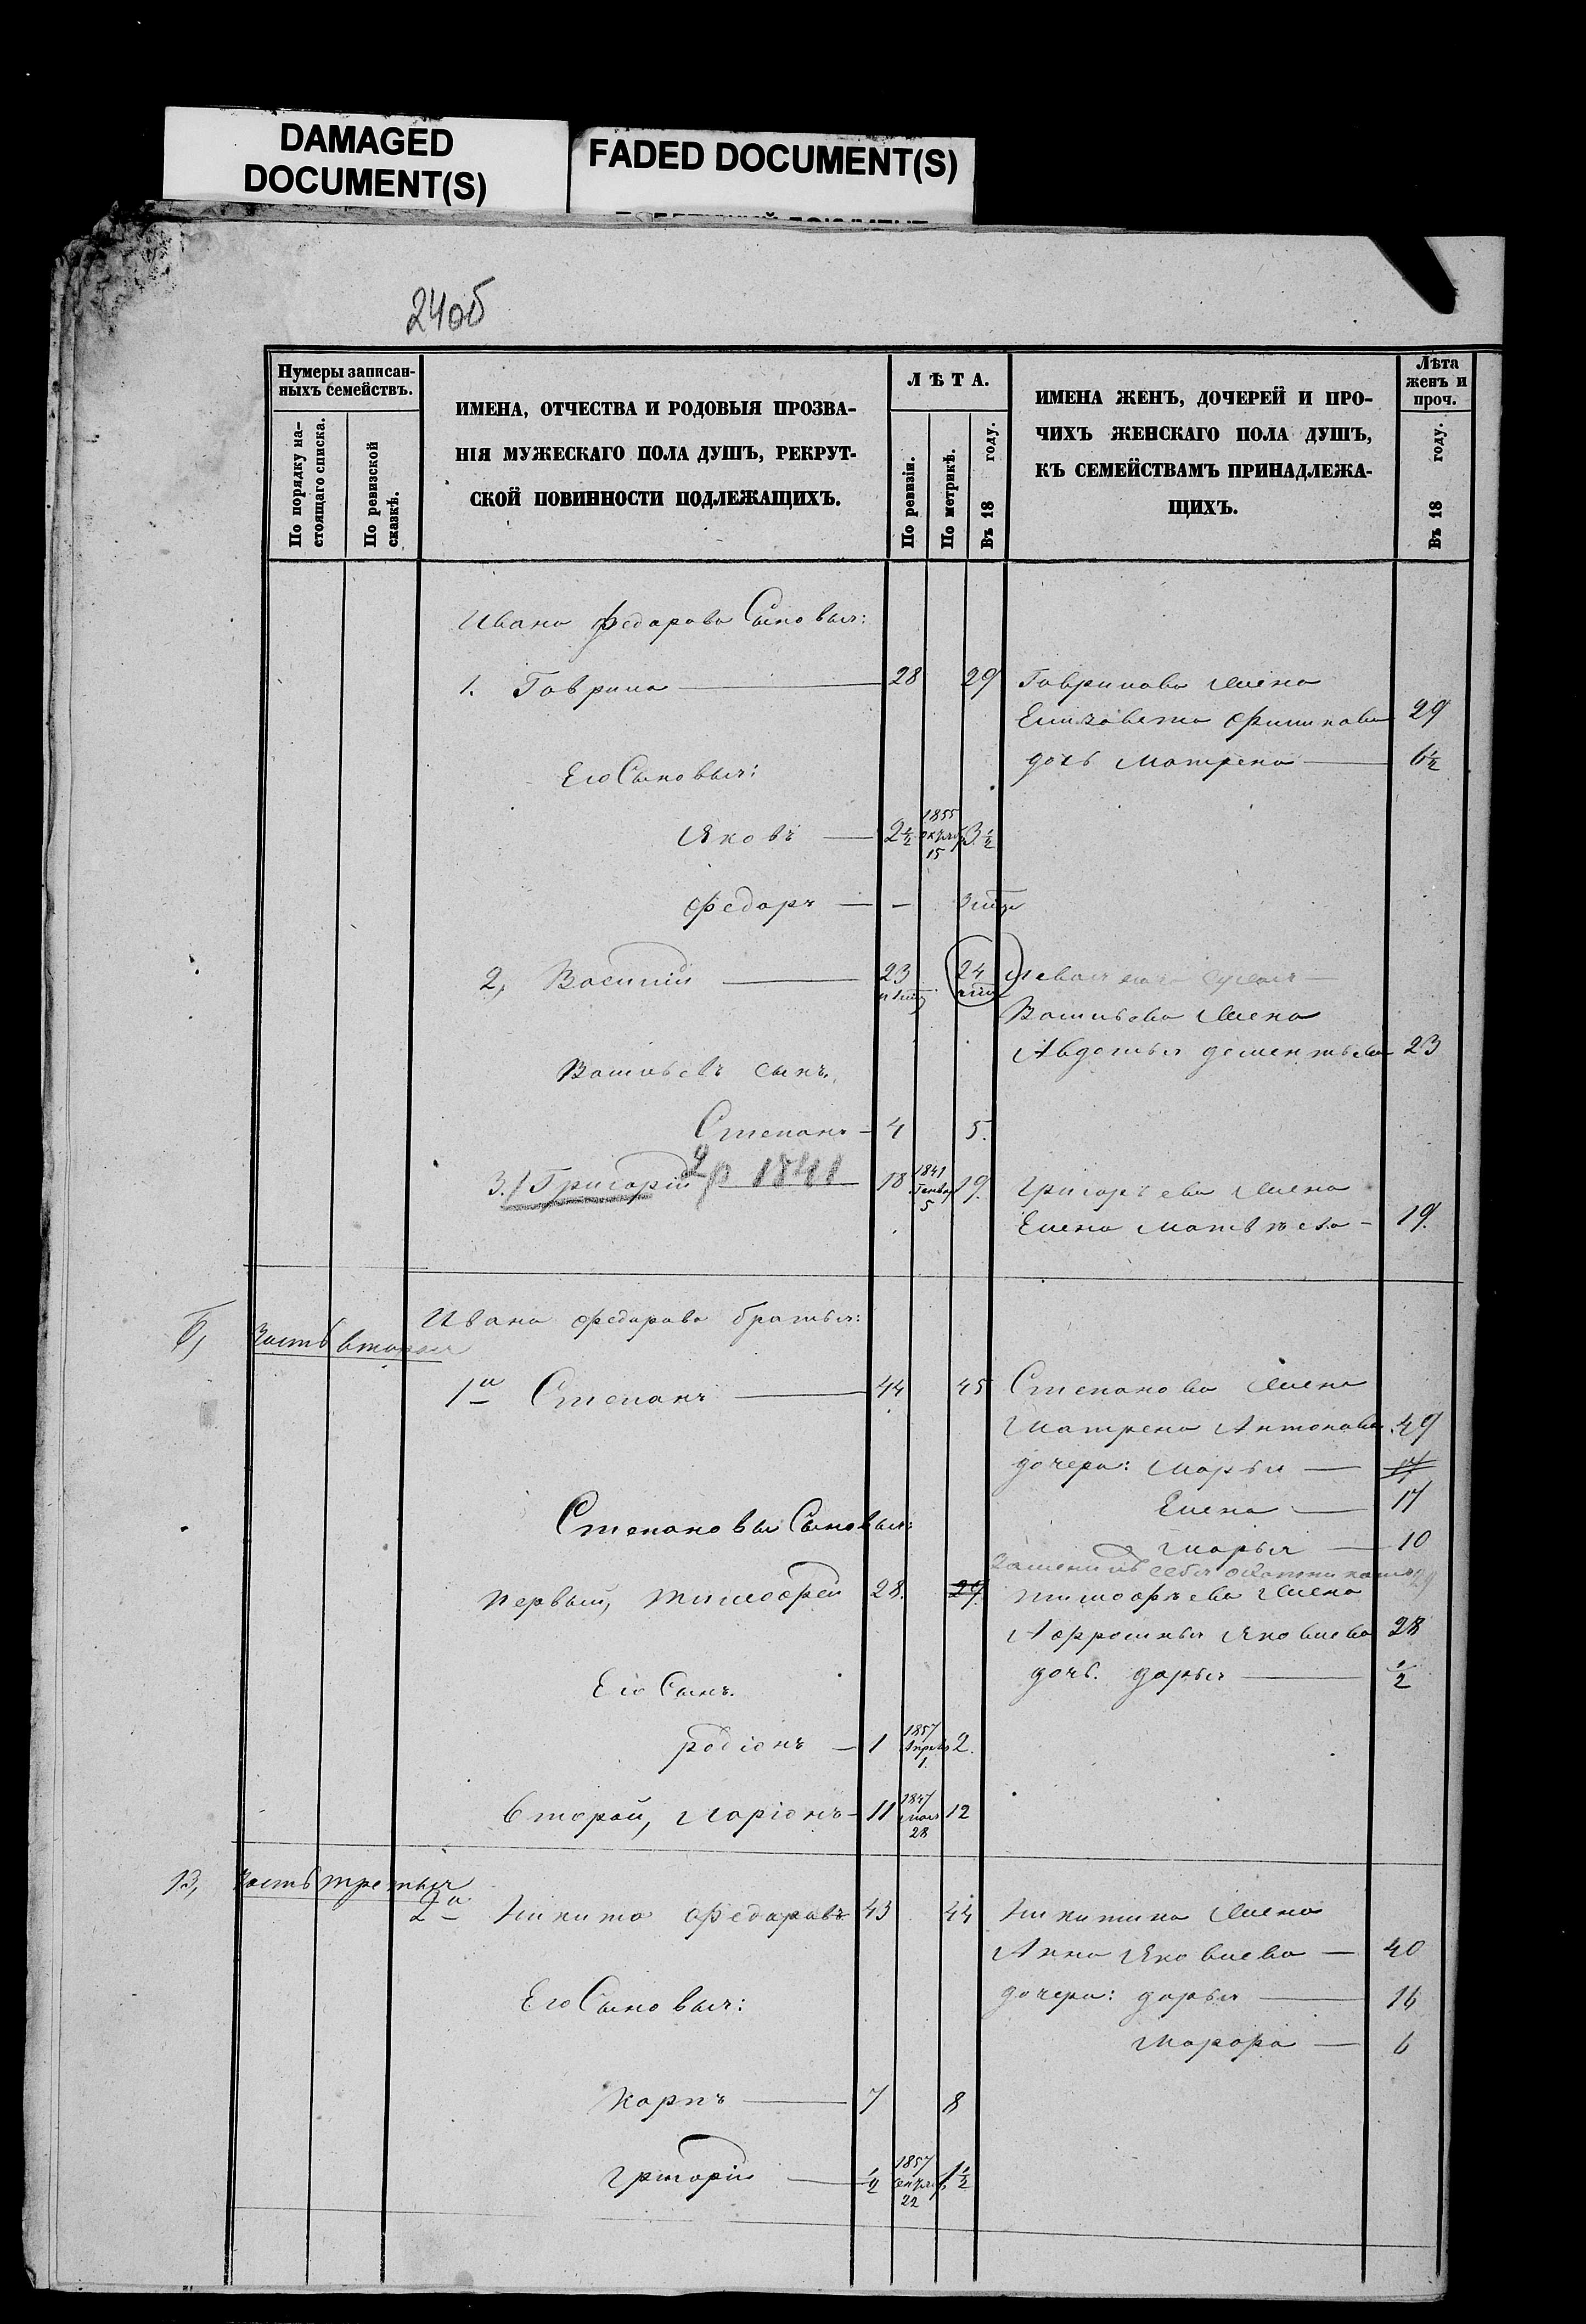 DAMAGED
DOCUMENT(S)
FADED DOCUMENT(S)
24об
Нумеры записан-
ныхъ семействъ.
По порядку на-
стоящаго списка.
По ревизской
сказкѣ.
ИМЕНА, ОТЧЕСТВА И РОДОВЫЯ ПРОЗВА-
НІЯ МУЖЕСКАГО ПОЛА ДУШЪ, РЕКРУТ-
СКОЙ ПОВИННОСТИ ПОДЛЕЖАЩИХЪ.
ЛѢТА.
По ревизіи.
По метрикѣ.
Въ 18 году.
ИМЕНА ЖЕНЪ, ДОЧЕРЕЙ И ПРО-
ЧИХЪ ЖЕНСКАГО ПОЛА ДУШЪ,
КЪ СЕМЕЙСТВАМЪ ПРИНАДЛЕЖА-
ЩИХЪ.
Лѣта
женъ и
проч.
Въ 18 году.
Ивана Федарова Сыновья:
1. Гаврила — 28 29 Гаврилова жена
Елизавета Филипава 29
дочь Матрена — 6½
Его Сыновья:
Яковъ — 2½ 1855 15 3½
Федаръ — —
2, Василій — 23 24
Васильева жена
Авдотья дементьева 23
Васильевъ сынъ,
Степанъ — 4 5.
3. Григорій 2р 1841 18 1841 Генвар 5 19. Григорьева жена
Елена Матвѣева — 19.
Б, Часть вторая
Ивана Федарова братья:
1й Степанъ — 44 45 Степанова жена
Матрена Антонава. 49
дочери: Марья — 17
Елена — 17
Степановы Сыновья:
Марья — 10
первый, Тимофей 28. 29. Тимофѣева жена
Афросинья Яковлева 28
дочь. дарья — ½
Его Сынъ.
родіонъ — 1 1857 Апрель 1. 2.
второй, Ларіонъ — 11 1847 28 12
В, Часть третья
2й Никита Федаравъ 43 44 Никитина жена
Анна Яковлева — 40
Его Сыновья: дочери: дарья — 16
Марфа — 6
Карпъ — 7 8
Григорій — ½ 1857 22 1½